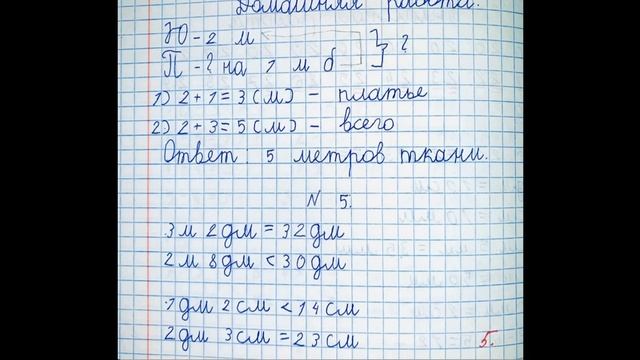 Домашняя работа.
Ю - 2 м
П - ? на 1 м б } ?
1) 2 + 1 = 3 (м) - платье
2) 2 + 3 = 5 (м) - всего
Ответ: 5 метров ткани.
N 5.
3 м 2 дм = 32 дм
2 м 8 дм < 30 дм
1 дм 2 см < 14 см
2 дм 3 см = 23 см
5.